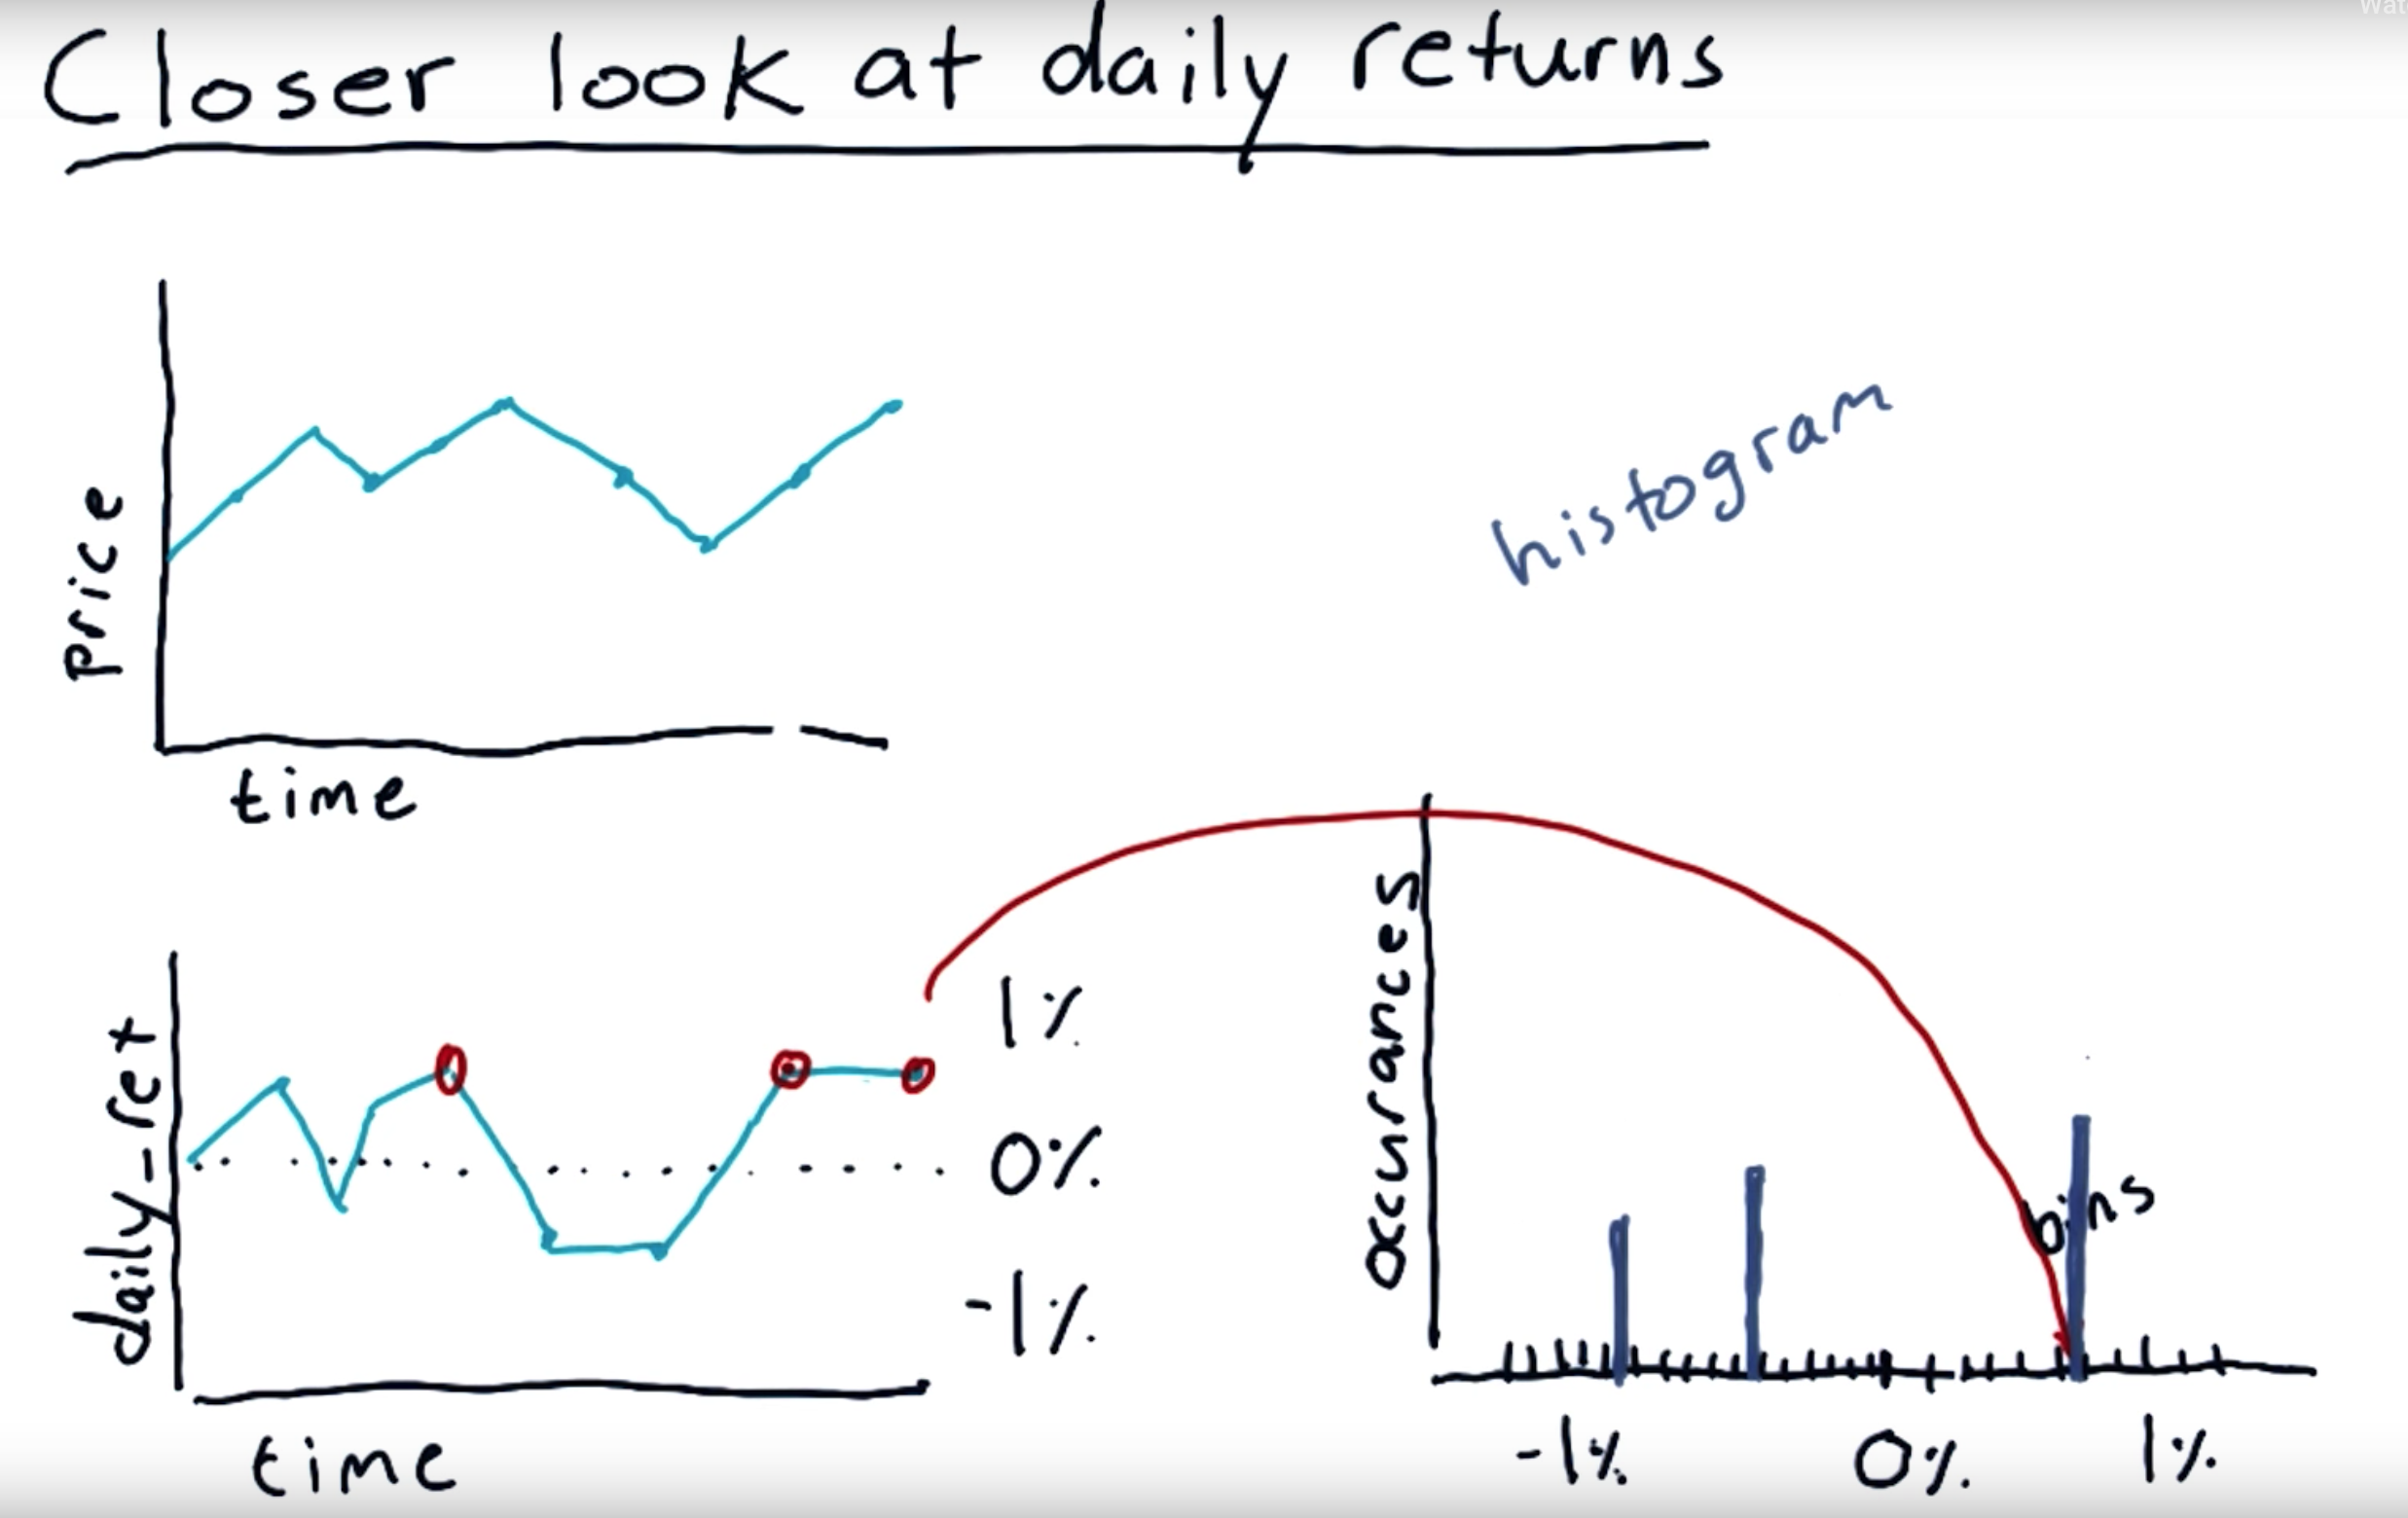 Closer look at daily returns
price
time
histogram
daily-ret
1%
0%
-1%
time
occurances
bins
-1%
0%
1%